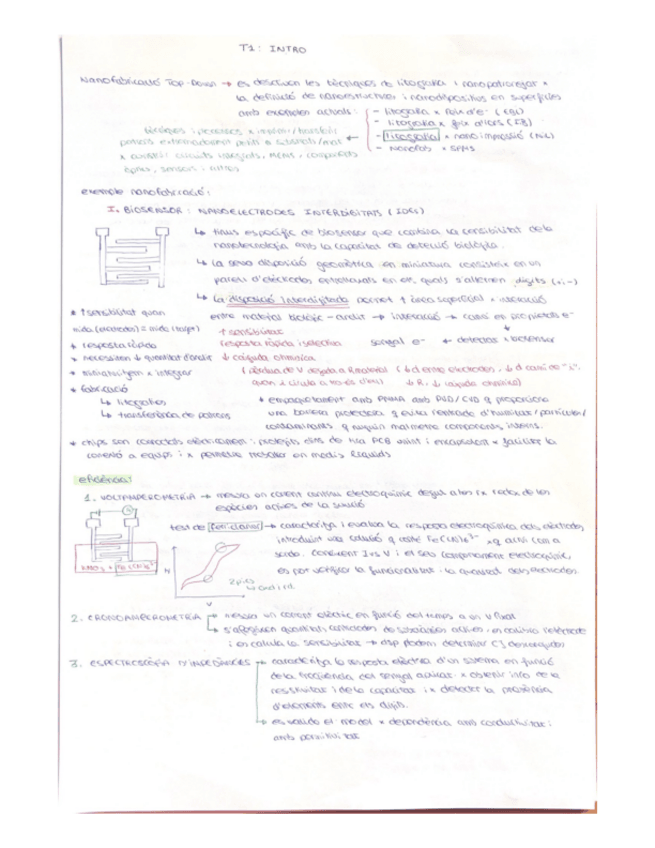 T1: INTRO
Nanofabricació Top-Down → es descriuen les tècniques de litografia i nanopatronejat x
la definició de nanoestructures i nanodispositius en superfícies
amb exemples actuals:
- litografia x feix d'e- (EBL)
- litografia x feix d'ions (FIB)
- litografia x nanoimpressió (NIL)
- Nanofab x SPMs
tècniques i processos x
patrons extremadament petits a substrats/mat
x construir circuits integrats, MEMS, components
òptics, sensors i altres
exemple nanofabricació:
I. BIOSENSOR: NANOELECTRODES INTERDIGITATS (IDEs)
↳ tipus específic de biosensor que combina la sensibilitat de la
nanotecnologia amb la capacitat de detecció biològica.
↳ La seva disposició geomètrica en miniatura consisteix en un
parell d'elèctrodes entrellaçats en els quals s'alternen dígits (+i-)
↳ La disposició interdigitada permet ↑ àrea superficial x interacció
entre material biològic - anàlit → interacció → canvi en propietats e-
* ↑ sensibilitat quan
mida (electrodes) = mida (target)
↑ sensibilitat
* resposta ràpida
resposta ràpida i selectiva
senyal e- ← detectat x biosensor
* necessiten ↓ quantitat d'anàlit
↓ caiguda ohmica
* miniaturitzem x integrar
(pèrdua de V deguda a R material (↓ d entre electrodes, ↓ d camí de "i"
quan x circula a través d'ell) ↓ R, ↓ caiguda ohmica)
* fabricació
↳ litografies
↳ transferència de patrons
* empaquetament amb PMMA amb PVD/CVD q proporciona
una barrera protectora q evita l'entrada d'humitat/partícules/
contaminants q puguin malmetre components interns.
* chips són connectats elèctricament i protegits dins de una PCB
i encapsulant x facilitar la
conexió a equips i x permetre treballar en medis líquids
eficiència:
1. VOLTAMPEROMETRIA → mesura un corrent continu electroquímic degut a les rx redox de les
espècies actives de la solució
test de ferricianur → caracteritza i avalua la resposta electroquímica dels elèctrodes,
introduint una solució q conté Fe(CN)6 3- xq actuï com a
sonda. Coneixent I vs V i el seu comportament electroquímic,
es pot verificar la funcionalitat i la qualitat dels elèctrodes
2 pics
↳ oxd i rd.
V
2. CRONOAMPEROMETRIA → mesura un corrent elèctric en funció del temps a un V fixat
↳ s'afegeixen quantitats controlades de substàncies actives, en calibra l'elèctrode
i en calcula la sensibilitat → dsp podem determinar C] desconegudes
3. ESPECTROSCÒPIA D'IMPEDÀNCIES → caracteritza la resposta elèctrica d'un sistema en funció
de la freqüència del senyal aplicat x obtenir info de la
resistivitat i de la capacitat i x detectar la presència
d'elements entre els dígits.
↳ es valida el model x dependència amb conductivitat i
amb permitivitat